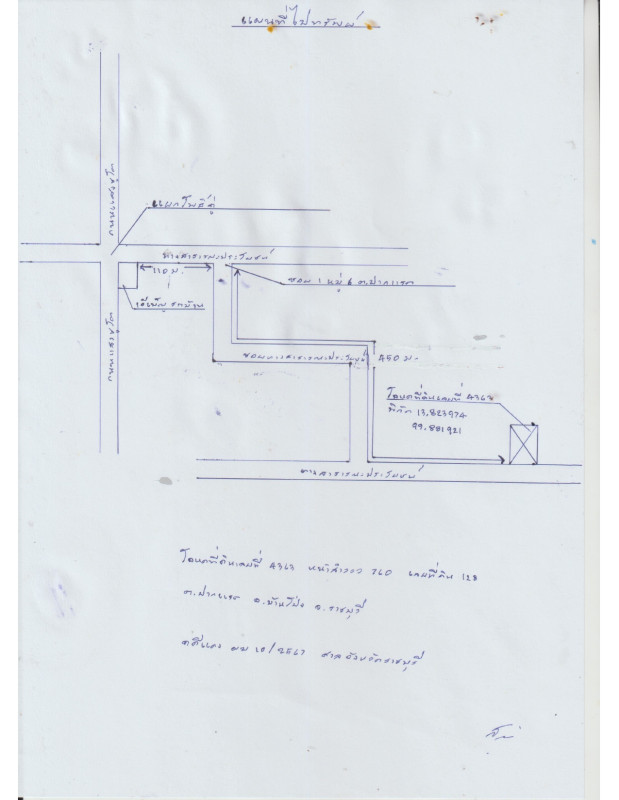 แผนที่ไปทรัพย์
ถนนแสงชูโต
แยกโพธิ์คู่
ทางสาธารณะประโยชน์
110 ม.
ซอย 1 หมู่ 6 ต.ปากแรต
ถนนแสงชูโต
ซอยทางสาธารณะประโยชน์
450 ม.
โฉนดที่ดินเลขที่ 4363
พิกัด 13.823974
99.881921
ทางสาธารณะประโยชน์
โฉนดที่ดินเลขที่ 4363 หน้าสำรวจ 760 เลขที่ดิน 128
ต.ปากแรต อ.บ้านโป่ง จ.ราชบุรี
คดีแดง ผบ 10/2567 ศาลจังหวัดราชบุรี